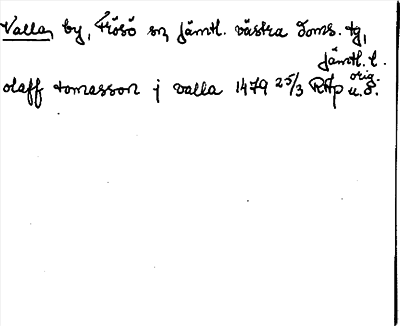 Valla, by, Frösö sn, Jämtl. västra doms. tg,
Jämtl. l.
olaff tomasson j valla 1479 25/3 RAp orig. u. d.